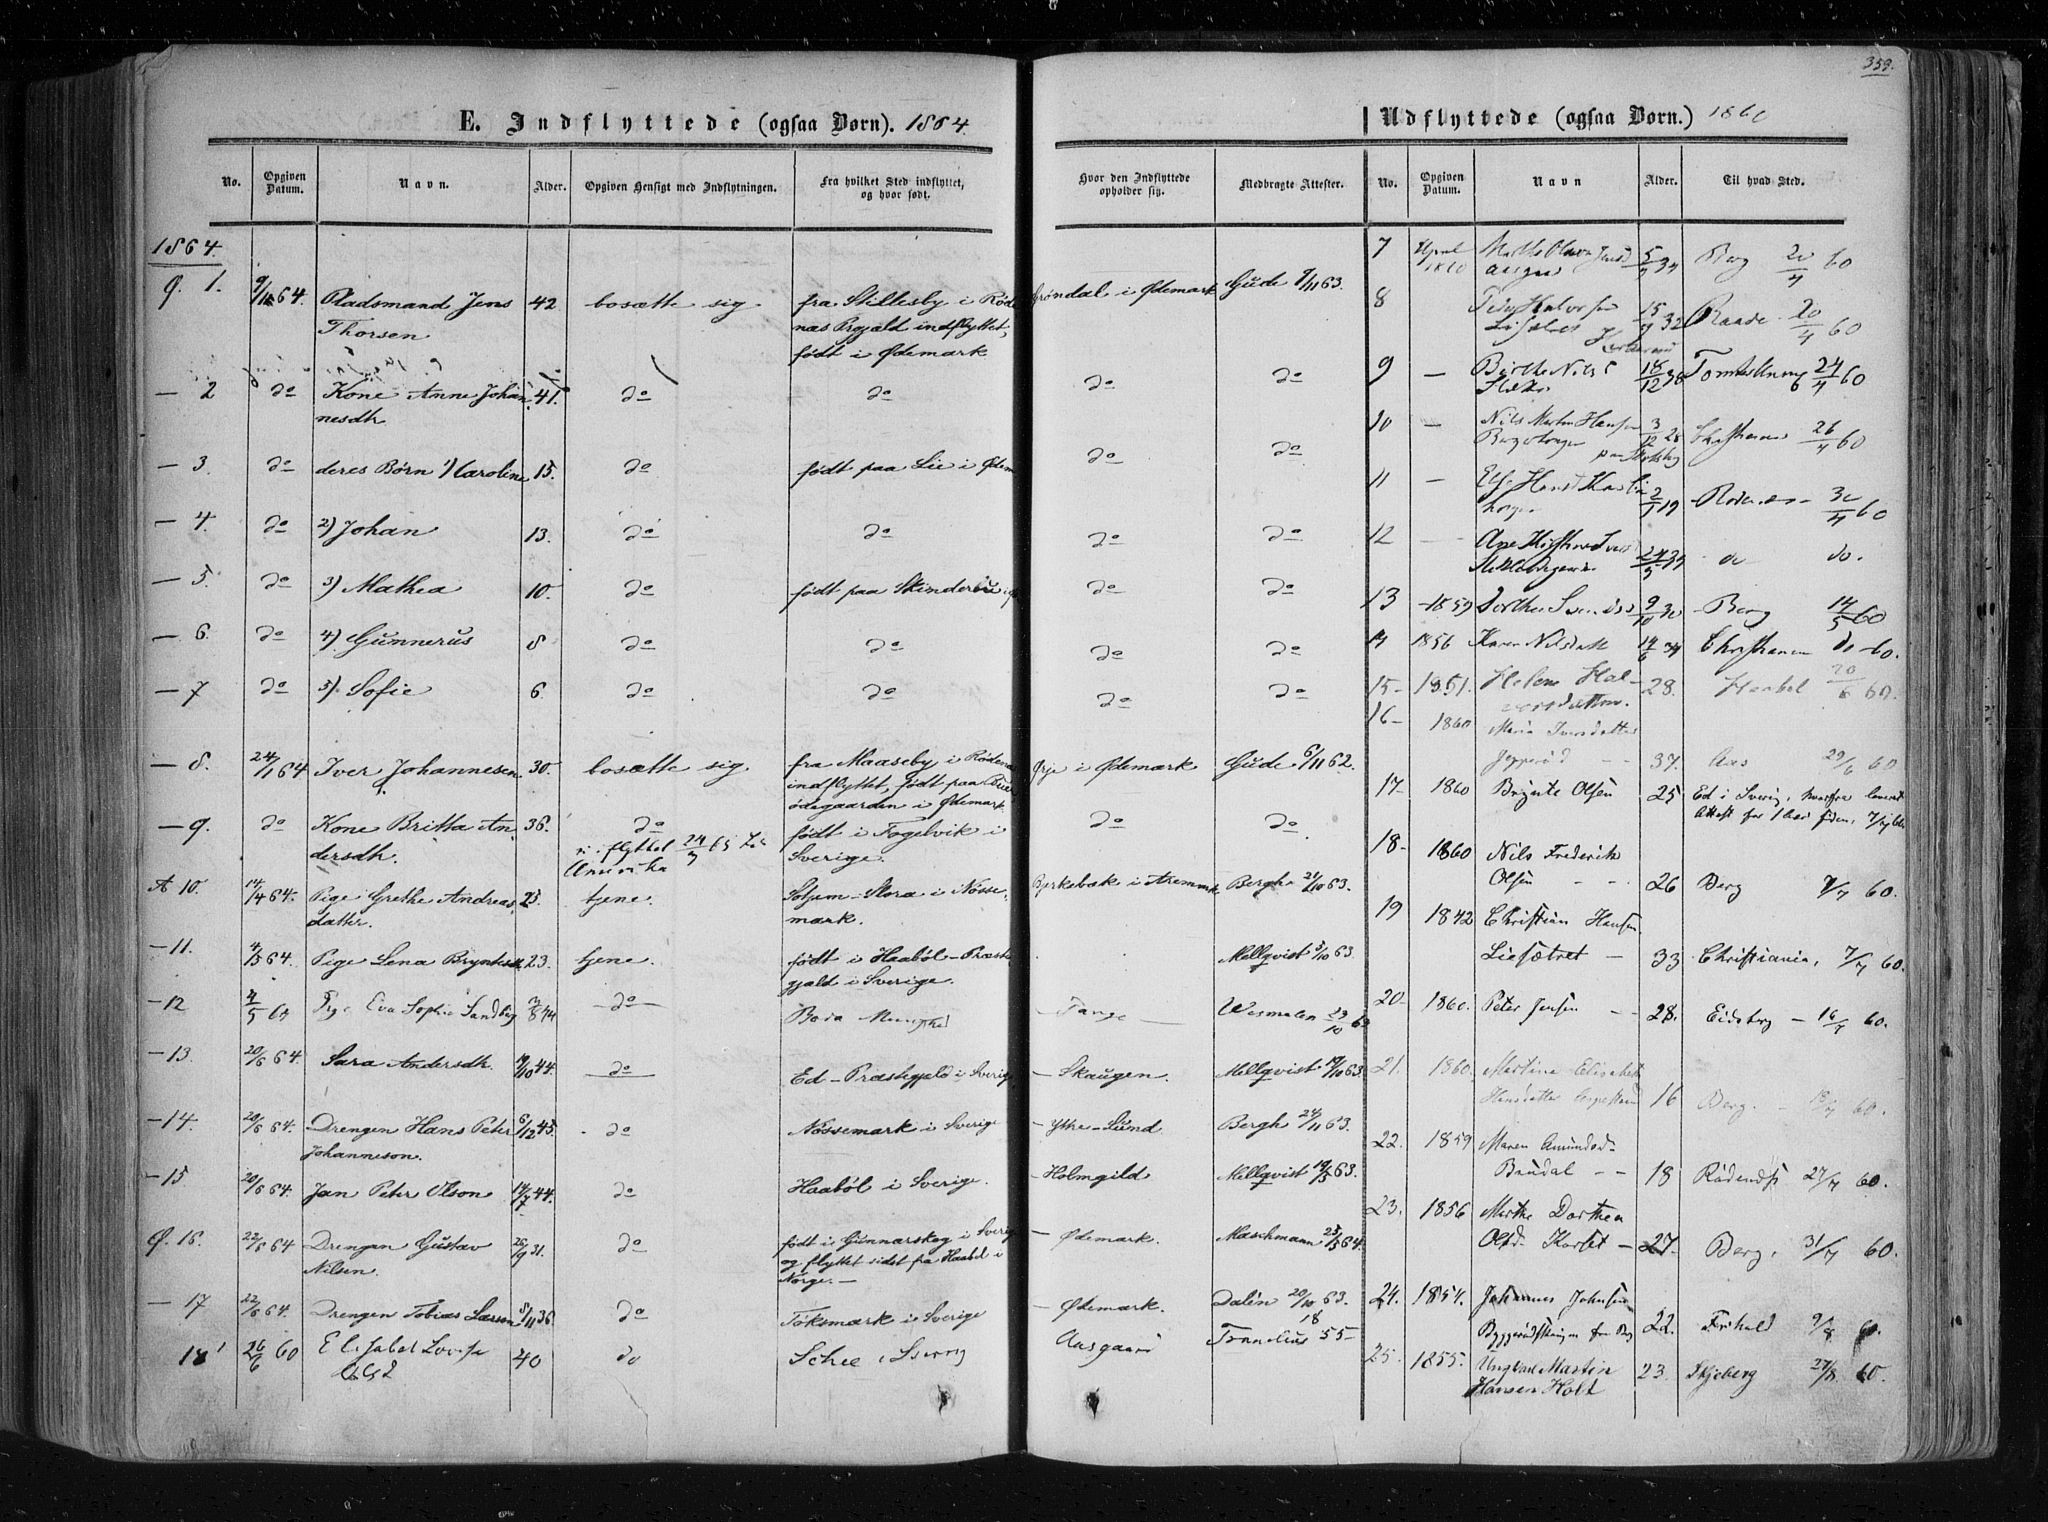 359.
E. Indflyttede (ogsaa Børn). 1864.
No.
Opgiven Datum.
Navn.
Alder.
Opgiven Hensigt med Indflytningen.
Fra hvilket Sted indflyttet, og hvor født.
Hvor den Indflyttede opholder sig.
Medbragte Attester.
1864.
Ø. 1. 64. Pladsmand Jens 42 bosætte sig fra Stillesby i Røde Grøndal i Ødemark Gude 9/11 63.
Thorsen næs Prgjald indflyttet,
født i Ødemark
— 2 do Kone Anne Johan 41. do do do do
nesdtr
— 3. do deres Børn 1) Caroline 15. do født paa Lie i Ødem do do
— 4. do 2) Johan 13. do do do do
— 5. do 3) Mathea 10. do født paa Skinderbu i do do
— 6. do 4) Gunnerus 8 do do do do
— 7 do 5) Sofie 6. do do do do
— 8. 24/1 64 Iver Johannesen 30. bosætte sig fra Maaseby i Rødenæ Ørje i Ødemark Gude 6/11 62.
indflyttet, født paa
ødegaarden i Ødemark
— 9. do Kone Britta An 36. do født i Fogelvik i do do.
dersdtr. flyttet 24/3 65 Sverige.
A 10. 14/4 64. Pige Grethe Andreas 25. tjene. Stora i Nösse Bjerkebæk i Aremmark Bergh 21/10 63.
datter. mark.
— 11. 4/5 64. Pige Lena Bryntesdtr 23. tjene. født i Haaböl - Præste Mellqvist 3/10 63.
gjald i Sverige.
— 12 4/5 64 Pige Eva Sophie Sandberg 3/8 44 do Tange Wesmalen 23/10 6
— 13. 20/6 64. Sara Andersdtr. 19/10 44. do Ed - Præstegjeld i Sverige — Skaugen. Mellqvist 19/10 63.
— 14. 20/6 64. Drengen Hans Peter 6/12 45. do Nössemark i Sverige — Ytre-Sund Bergh 24/11 63.
Johanneson.
— 15 20/6 64. Jan Peter Olson 14/7 44. do Haaböl i Sverige. — Holmgild Mellqvist 19/5 63.
Ø. 16. 22/6 64 Drengen Gustav 26/9 31. do født i Gunnarskog i Sverig — Ødemark. Maschmann 25/5 64.
Nilsen. og flyttet sidst fra Haabøl i
Norge. —
— 17 22/6 64. Drengen Tobias Larsen 8/11 36. do Töksmark i Sverige — Ødemark. Dalén 20/10 63.
18 26/6 60 Elisabet Lovise 40 do Schee i Sverig Aasgaard Tornelius 18 55
Udflyttede (ogsaa Børn.) 1860
No.
Opgiven Datum.
Navn
Alder.
Til hvad Sted.
7 April 1860 Marthe Olava Jensd 5/4 34 Berg 20/4 60
8 Halvorsen 15/9 32 Raade 20/4 60
9 — Birthe Nilsd 18/12 38 24/4 60
10 — Nils Martin Hansen 3/12 28 Christiania 26/4 60
11 — Else Hansd 2/5 19 Rødenæs 30/4 60
12 — 24/5 39 do do.
13 — 1859 Dorthe Svendsd 9/10 30 Berg 14/5 60
14 1856 Karen Nilsdatt 14/6 34 Christiania do 60.
15 — 1851. Helene Hal- 28. Haabøl 20/6 60.
vorsdatter.
16 — 1860 Maria Iversdatter
Jepperød — — 37. Aas 29/6 60
17 — 1860 Brynte Olsen 25 Ed i Sverig, hvorfra leveret
Attest for 1 Aar siden, 7/7 60.
18 — 1860 Nils Frederik
Olsen — — 26 Berg 7/7 60.
19 1842 Christian Hansen
Liesætret — 33 Christiania, 7/7 60.
20 — 1860. Peter Jensen — — 28. Eidsberg — 16/7 60.
21. 1860. Martine Elisabeth
Hansdatter 16 Berg. — 18/7 60.
22. 1859 Maren Amundsd.
Brudal — — 18 Rødends 27/7 60.
23. 1856 Marthe Dorthea
Olsd. — 27. Berg. 31/7 60.
24. 1854. Johannes Johnsen
22. Frhald 9/8 60.
25. 1855. Ungkarl Martin 23. Skjeberg 27/8 60.
Hansen Holt